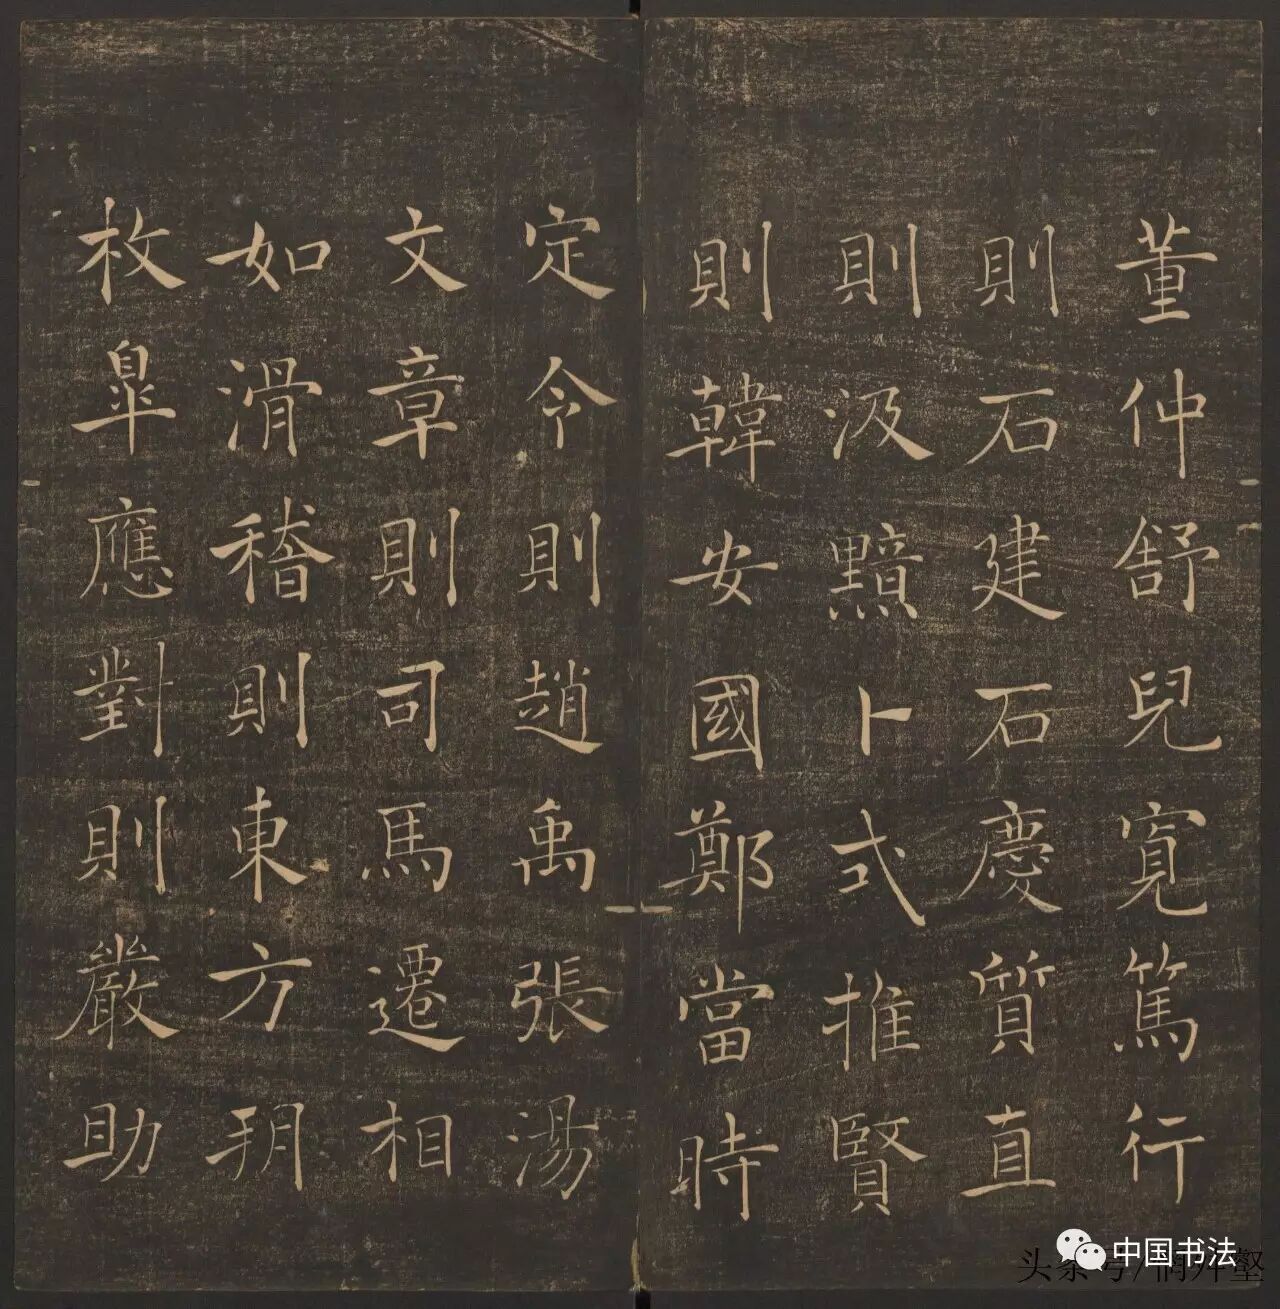 董仲舒兒寬篤行
則石建石慶質直
則汲黯卜式推賢
則韓安國鄭當時
定令則趙禹張湯
文章則司馬遷相
如滑稽則東方朔
枚皐應對則嚴助
中国书法